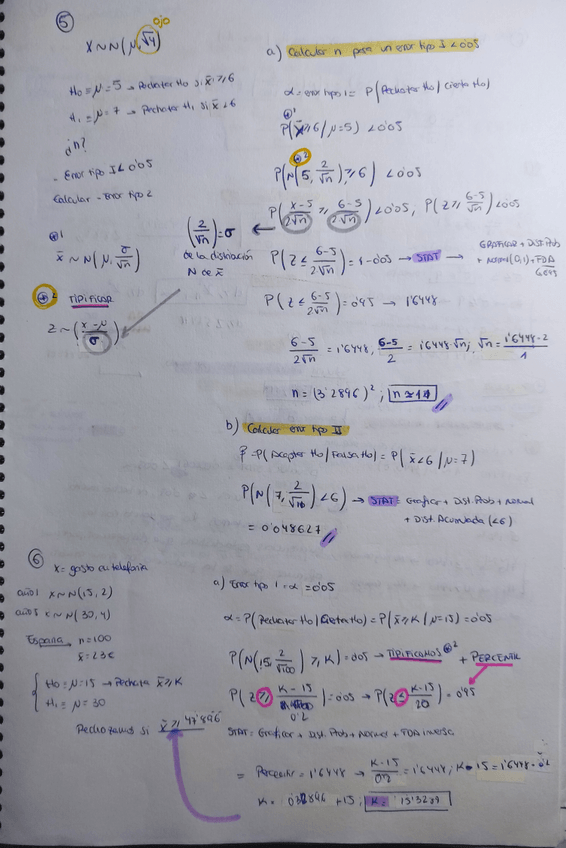 ⑤
ojo
X∼N(μ,√4)
H₀ = μ=5 → Rechazar H₀ si x̄ ≥ 6
H₁ = μ=7 → Rechazar H₁ si x̄ < 6
¿n?
- Error tipo I < 0'05
Calcular - Error tipo 2
⊛1
x̄ ∼ N(μ, σ/√n)
⊛2 TIPIFICAR
Z ∼ (x-μ/σ)
(2/√n) = σ
de la distribución
N de x̄
a) Calcular n para un error tipo I < 0'05
α = error tipo 1 = P(Rechazar H₀ / Cierta H₀)
⊛1
P(x̄ ≥ 6 / μ=5) < 0'05
⊛2
P(N(5, 2/√n) ≥ 6) < 0'05
P(x-5/2√n ≥ 6-5/2√n) < 0'05; P(Z ≥ 6-5/√n) < 0'05
P(Z ≤ 6-5/2√n) = 1-0'05 → STAT →
GRAFICAR + Dist.Prob
+ Normal(0,1) + FDA
P(Z ≤ 6-5/2√n) = 0'95 → 1'6448
6-5/2√n = 1'6448, 6-5/2 = 1'6448·√n; √n = 1'6448·2/1
n = (3'2896)²; n ≈ 11
b) Calcular error tipo II
β = P(Aceptar H₀ / Falsa H₀) = P(x̄ < 6 / μ=7)
P(N(7, 2/√11) < 6) → STAT = Graficar + Dist.Prob + Normal
+ Dist.Acumulada (<6)
= 0'048627
⑥
X = gasto en telefonía
año 1 X∼N(15, 2)
X∼N(30, 4)
España → n=100
x̄ = 23€
H₀ = μ=15 → Rechazo x̄ ≥ K
H₁ = μ=30
Rechazamos si x̄ ≥
a) Error tipo 1 = α = 0'05
α = P(Rechazar H₀ / Cierta H₀) = P(x̄ ≥ K / μ=15) = 0'05
P(N(15, 2/√100) ≥ K) = 0'05 → TIPIFICAMOS ⊛2 + PERCENTIL
P(Z ≥ K-15/0'2) = 0'05 → P(Z ≤ K-15/20) = 0'95
STAT = Graficar + Dist.Prob + Normal + FDA inversa
= Percentil = 1'6448 → K-15/0'2 = 1'6448; K-15 = 1'6448·0'2
K = 0'32896 + 15; K = 15'3289